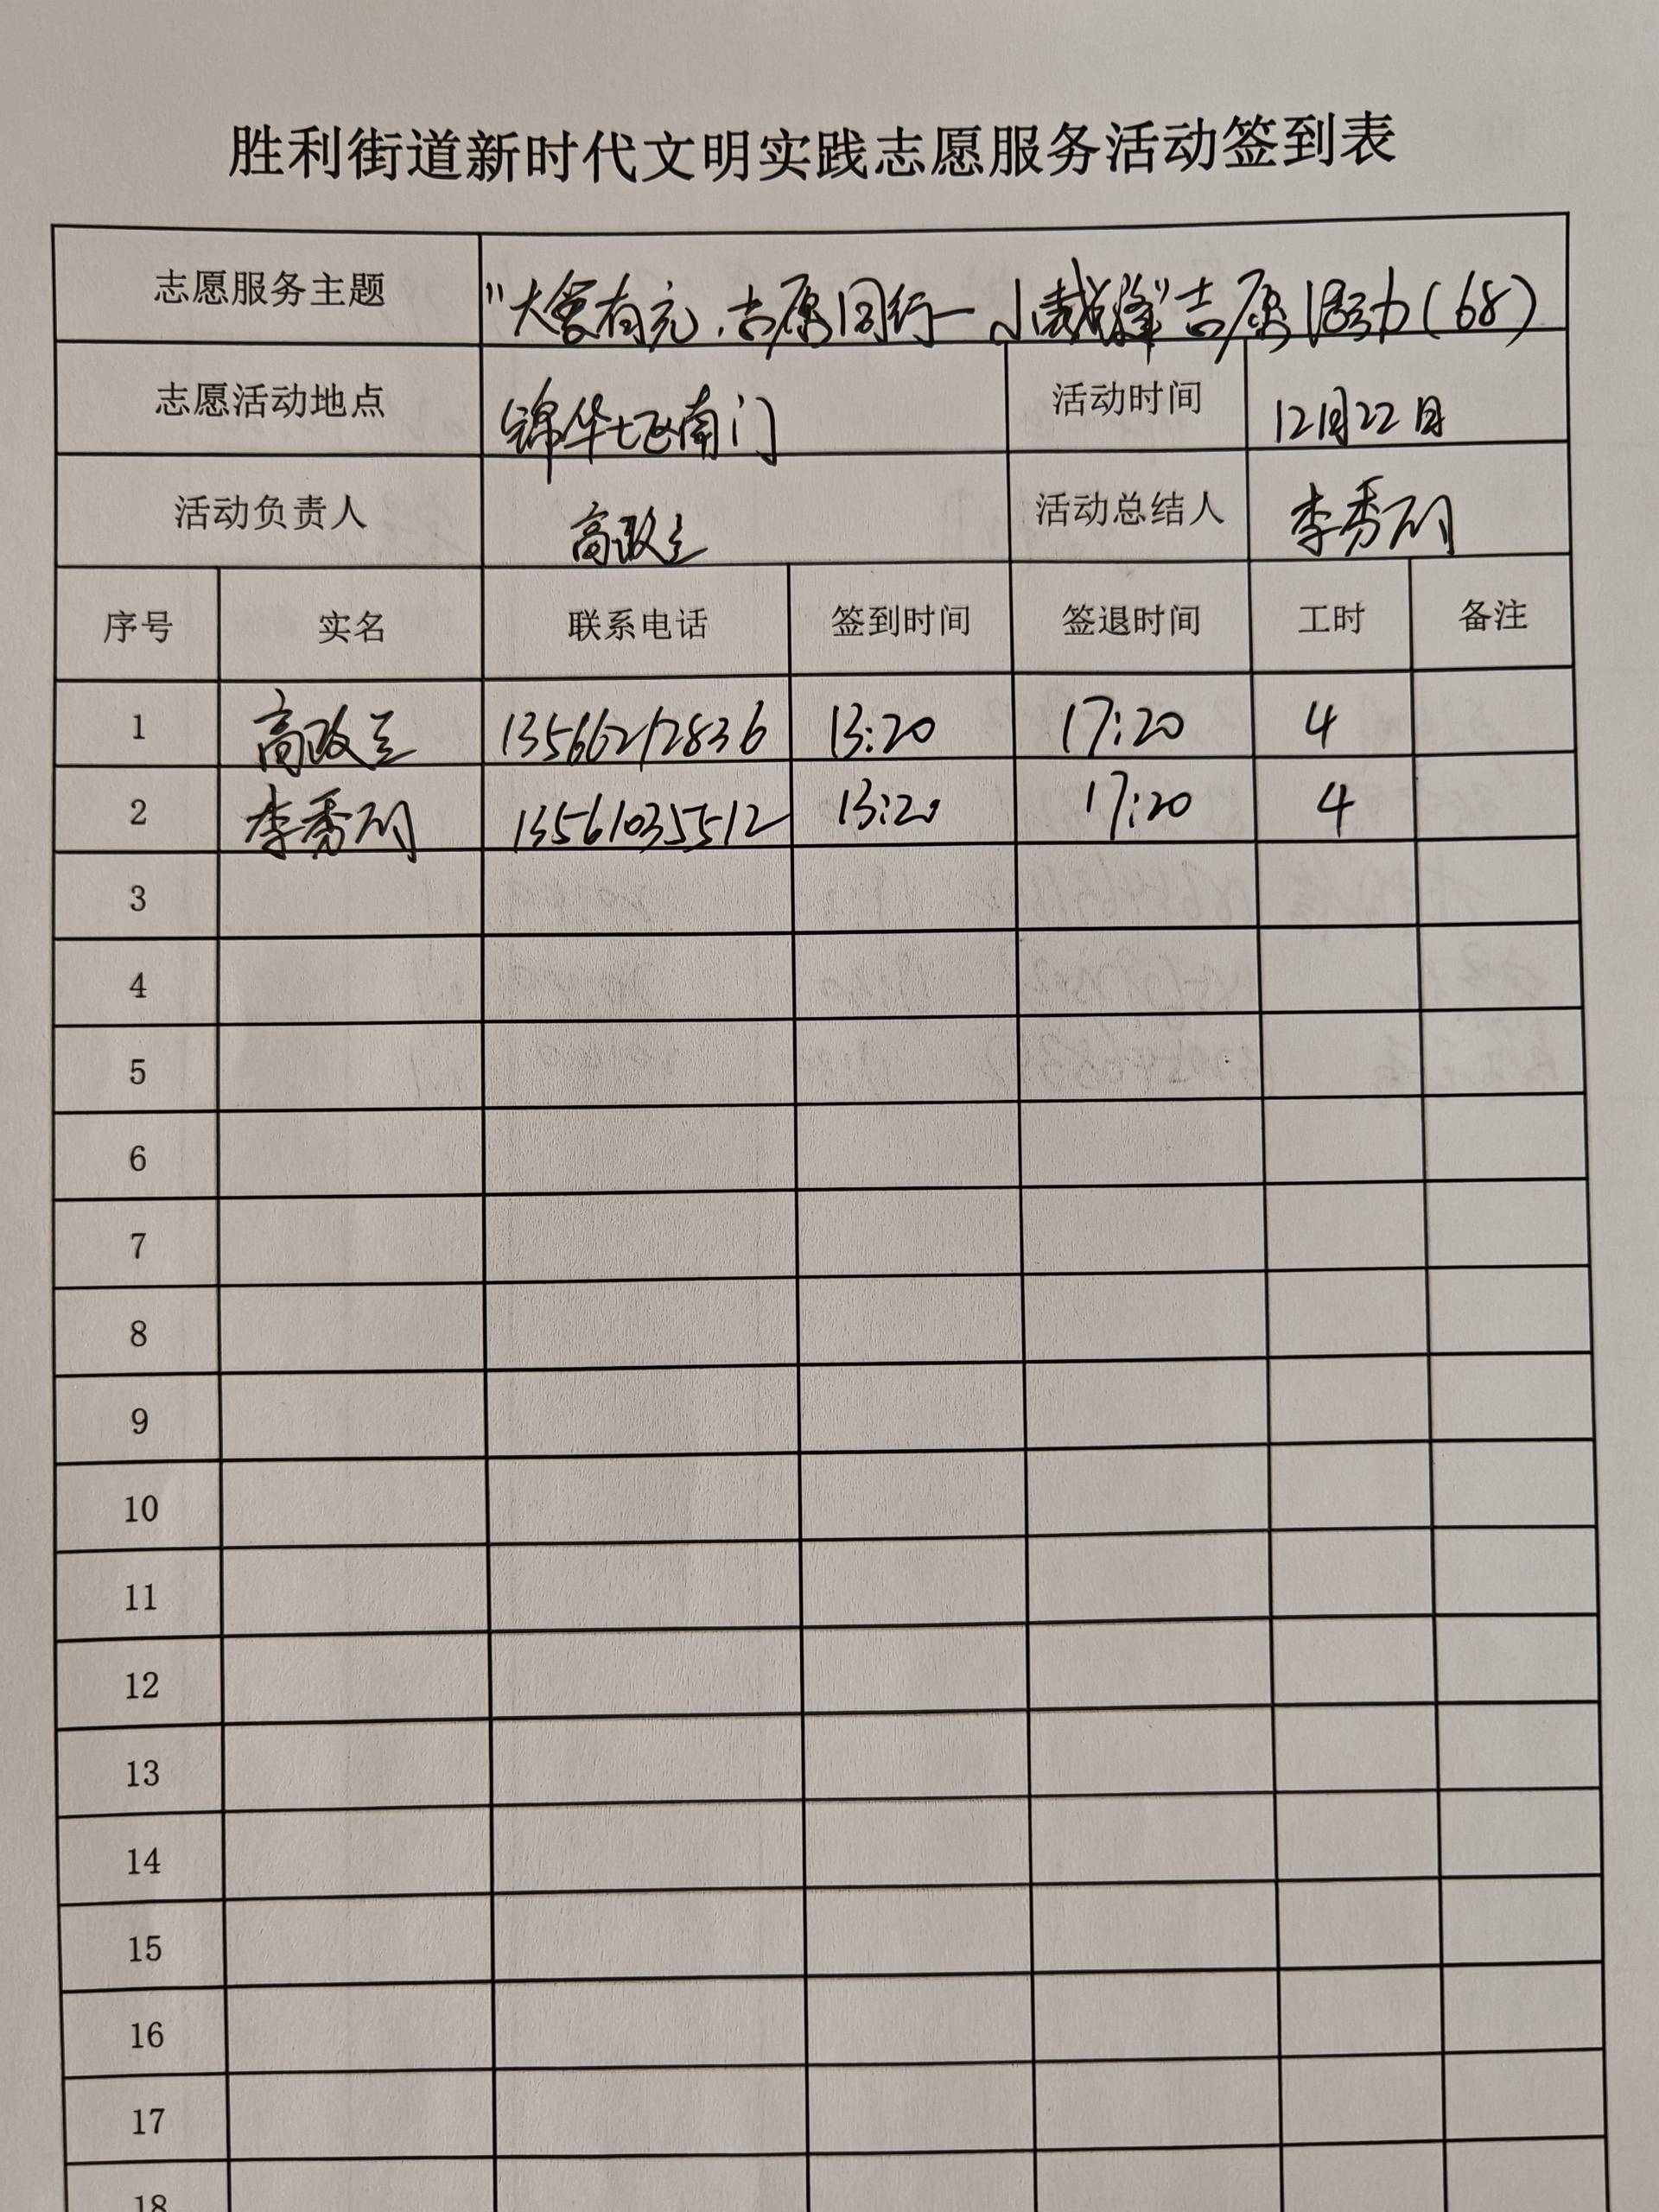 胜利街道新时代文明实践志愿服务活动签到表
志愿服务主题 "大爱有元,志愿同行—小裁缝"志愿活动(68)
志愿活动地点 锦华七区南门 活动时间 12月22日
活动负责人 高政立 活动总结人 李秀丽
序号 实名 联系电话 签到时间 签退时间 工时 备注
1 高政立 13566212836 13:20 17:20 4
2 李秀丽 13561035512 13:20 17:20 4
3
4
5
6
7
8
9
10
11
12
13
14
15
16
17
18